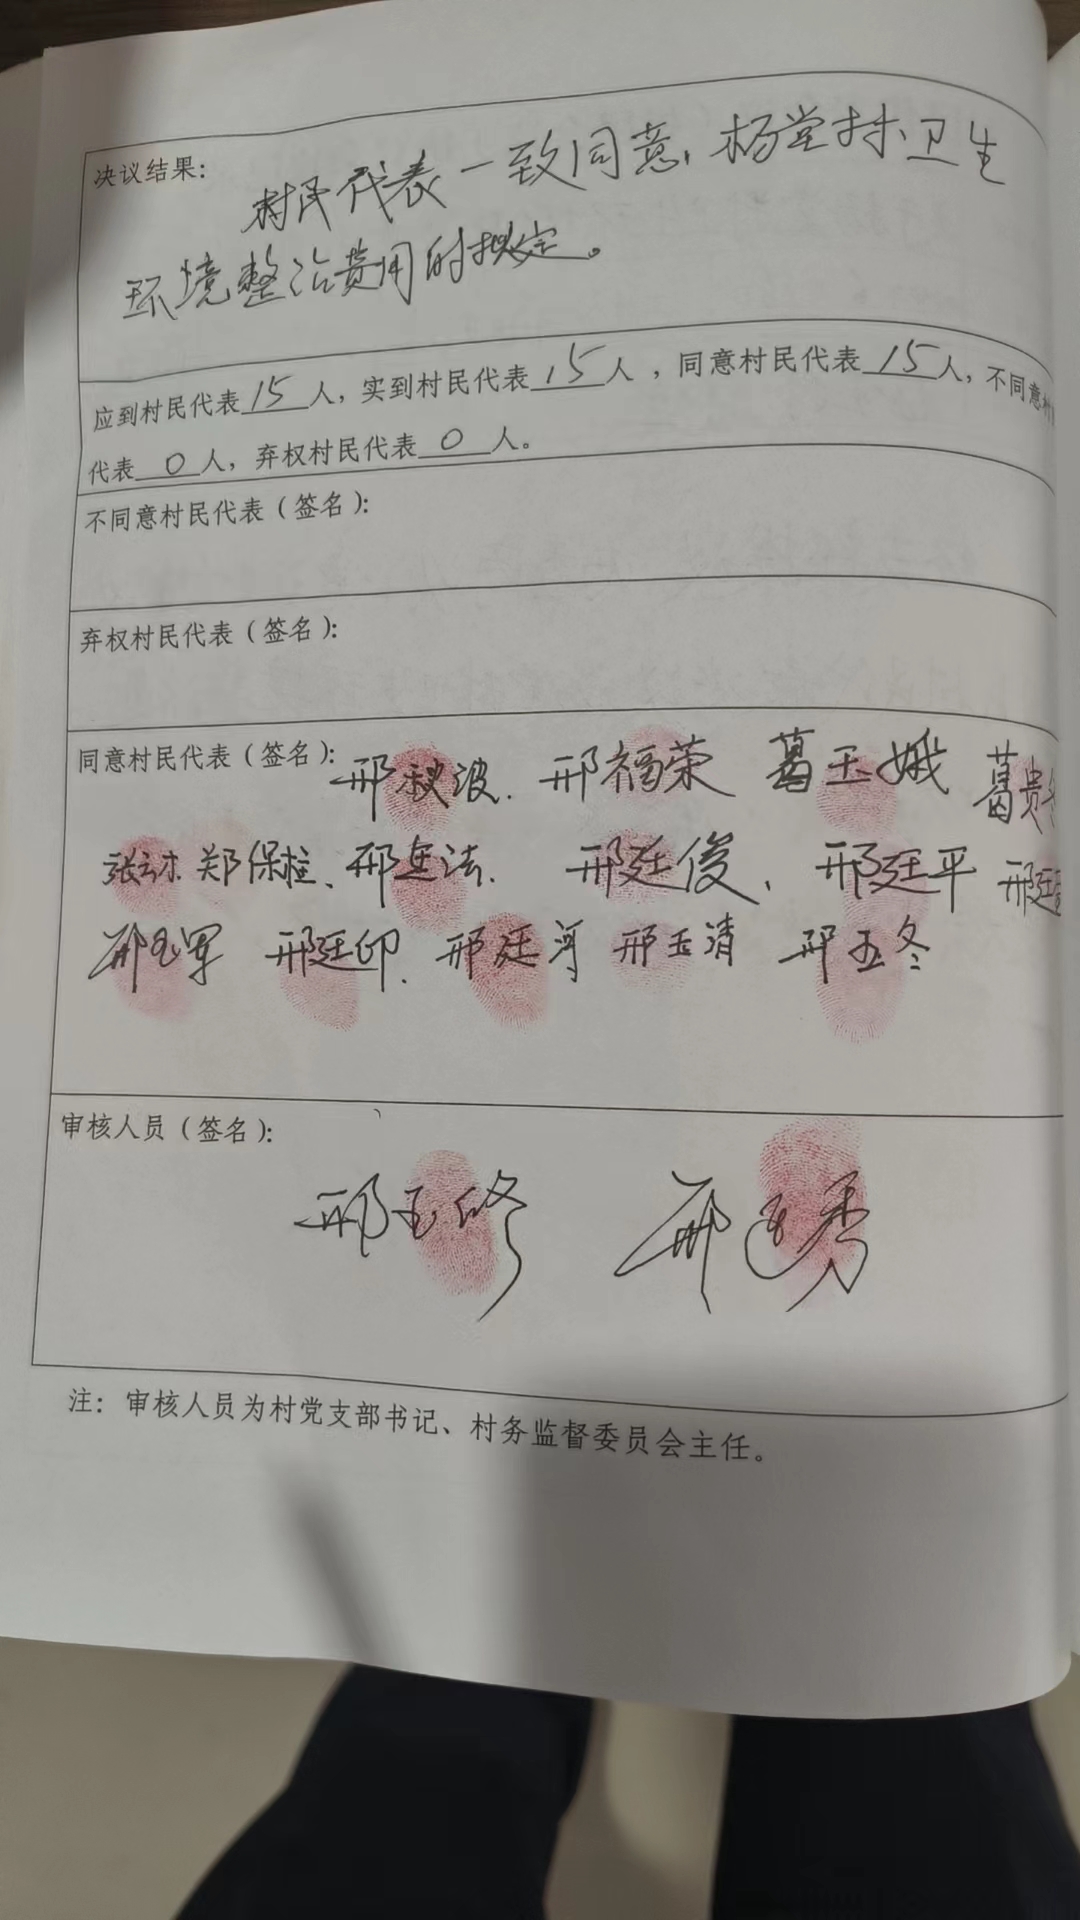 决议结果:
村民代表一致同意,杨堂村卫生
环境整治费用的拟定。
应到村民代表15人,实到村民代表15人,同意村民代表15人,不同意村
代表0人,弃权村民代表0人。
不同意村民代表(签名):
弃权村民代表(签名):
同意村民代表(签名):
邢秋波. 邢福荣 葛玉娥 葛贵
郑保柱、 邢廷俊、 邢廷平 邢廷
邢玉军 邢廷印. 邢廷河 邢玉清 邢玉冬
审核人员(签名):
邢玉修 邢
注: 审核人员为村党支部书记、村务监督委员会主任。